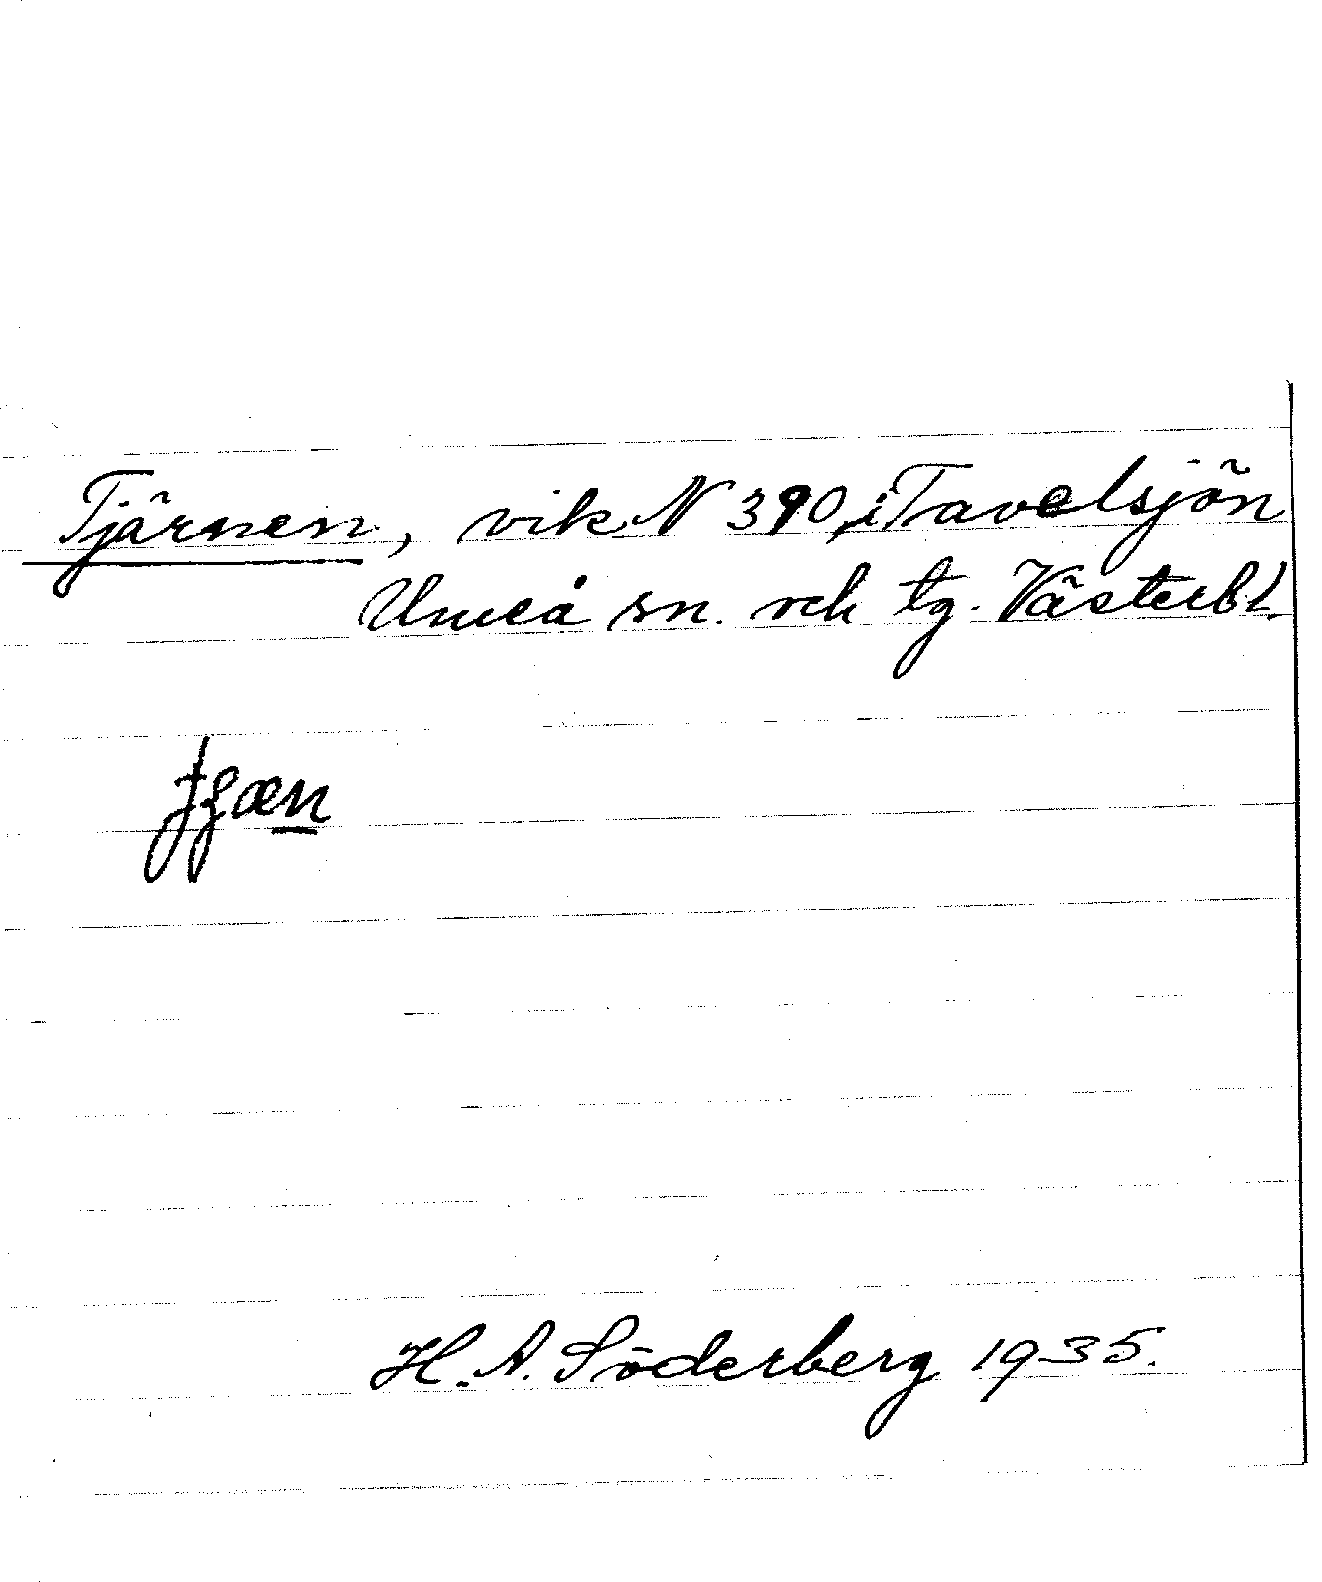 Tjärnen, vik N 390, i Tavelsjön
Umeå sn. och tg. Västerbl.
H. A. Söderberg 1935.